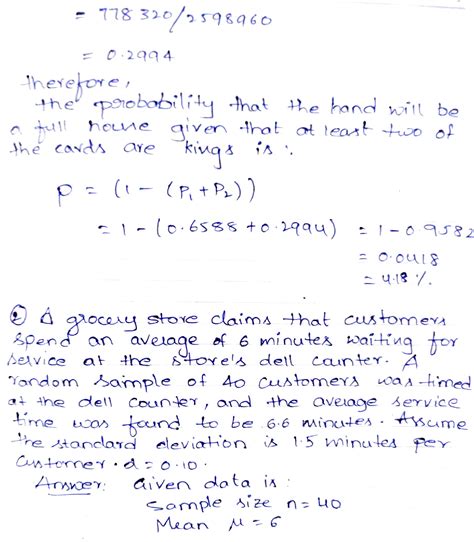 = 778320/2598960
= 0.2994
therefore,
the probability that the hand will be
a full house given that at least two of
the cards are kings is :
P = (1 - (P1 + P2))
= 1 - (0.6588 + 0.2994) = 1 - 0.9582
= 0.0418
= 4.18 %.
② A grocery store claims that customers
spend an average of 6 minutes waiting for
service at the store's dell counter. A
random sample of 40 customers was timed
at the dell counter, and the average service
time was found to be 6.6 minutes. Assume
the standard deviation is 1.5 minutes per
customer. α = 0.10.
Answer: Given data is :
Sample size n = 40
Mean μ = 6